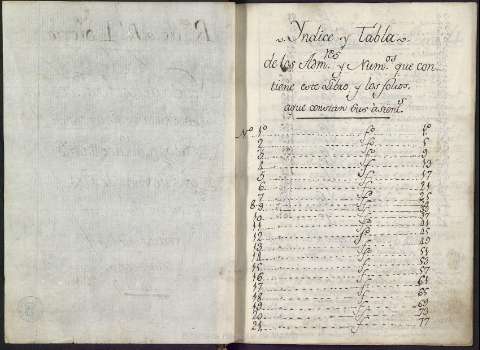 Yndice y Tabla
de los Adm.res y Num.os que con-
tiene este Libro, y los folios,
aque constan sus asient.s
N.o 1.o fo 1.o
2 fo 5
3 fo 9
4 fo 13
5 fo 17
6 fo 21
7 fo 25
8
9
10 fo 37
11 fo 41
12 fo 45
13 fo 49
14 fo 51
15 fo 53
16 fo 57
17 fo 61
18 fo 65
19 fo 69
20 fo 73
21 fo 77